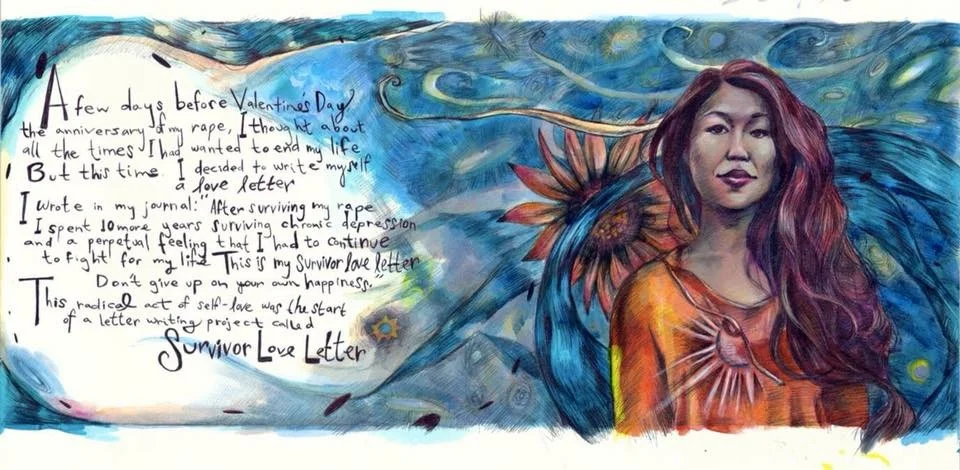 A few days before Valentine's Day
the anniversary of my rape, I thought about
all the times I had wanted to end my life
But this time I decided to write myself
a love letter
I wrote in my journal: "After surviving my rape
I spent 10 more years surviving chronic depression
and a perpetual feeling that I had to continue
to fight for my life This is my Survivor love letter
Don't give up on your own happiness."
This radical act of self-love was the start
of a letter writing project called
Survivor Love Letter